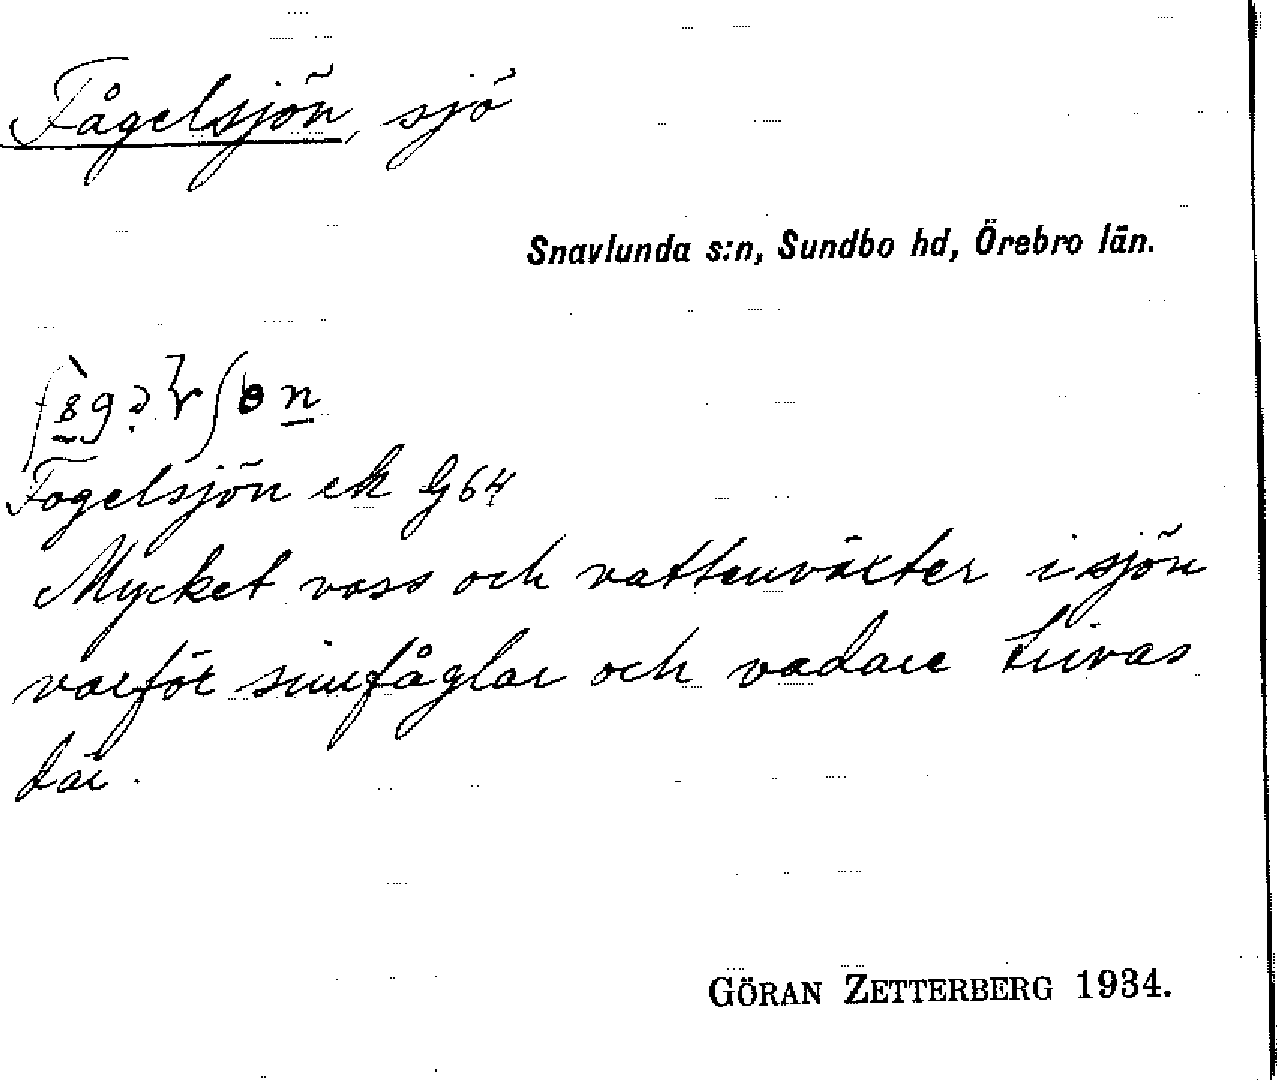 Fågelsjön, sjö
Snavlunda s:n, Sundbo hd, Örebro län.
Fogelsjön ek G 64
Mycket vass och vattenväxter i sjön
varför simfåglar och vadare trivas
där.
GÖRAN ZETTERBERG 1934.